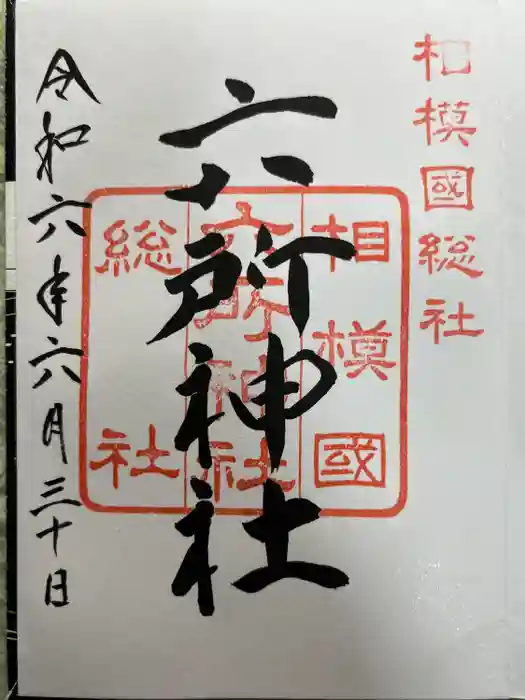 相模國総社
相模國
六所神社
総社
六所神社
令和六年六月三十日